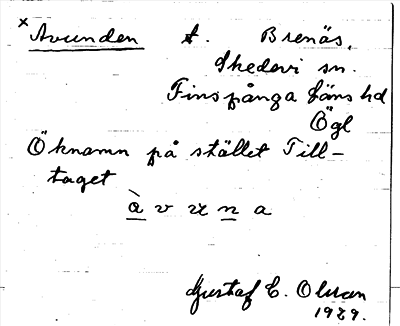 x Avunden t. Brenäs,
Skedevi sn.
Finspånga läns hd
Ögl
Öknamn på stället Till-
taget
àvuna
Gustaf E. Olsson
1929.